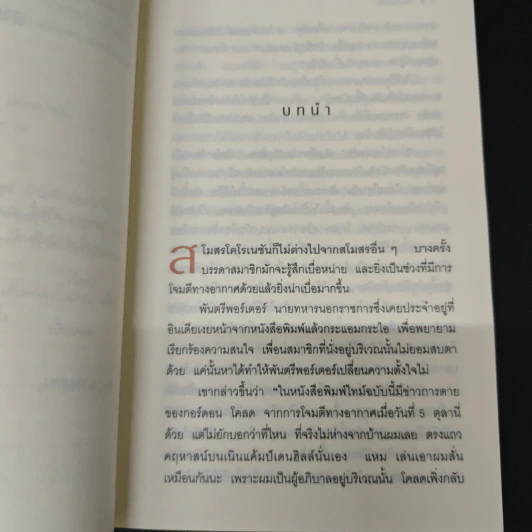 บทนำ
สโมสรโคโรเนชันก็ไม่ต่างไปจากสโมสรอื่น ๆ บางครั้ง
บรรดาสมาชิกมักจะรู้สึกเบื่อหน่าย และยิ่งเป็นช่วงที่มีการ
โจมตีทางอากาศด้วยแล้วยิ่งน่าเบื่อมากขึ้น
พันตรีพอร์เตอร์ นายทหารนอกราชการซึ่งเคยประจำอยู่ที่
อินเดียเงยหน้าจากหนังสือพิมพ์แล้วกระแอมกระไอ เพื่อพยายาม
เรียกร้องความสนใจ เพื่อนสมาชิกที่นั่งอยู่บริเวณนั้นไม่ยอมสบตา
ด้วย แต่นั้นหาได้ทำให้พันตรีพอร์เตอร์เปลี่ยนความตั้งใจไม่
เขากล่าวขึ้นว่า “ในหนังสือพิมพ์ไทม์ฉบับนี้มีข่าวการตาย
ของกอร์ดอน โคลด จากการโจมตีทางอากาศเมื่อวันที่ 5 ตุลานี่
ด้วย แต่ไม่ยักบอกว่าที่ไหน ที่จริงไม่ห่างจากบ้านผมเลย ตรงแถว
คฤหาสน์บนเนินแค้มป์เดนฮิลล์นั่นเอง แหม เล่นเอาผมสั่น
เหมือนกันนะ เพราะผมเป็นผู้อภิบาลอยู่บริเวณนั้น โคลดเพิ่งกลับ